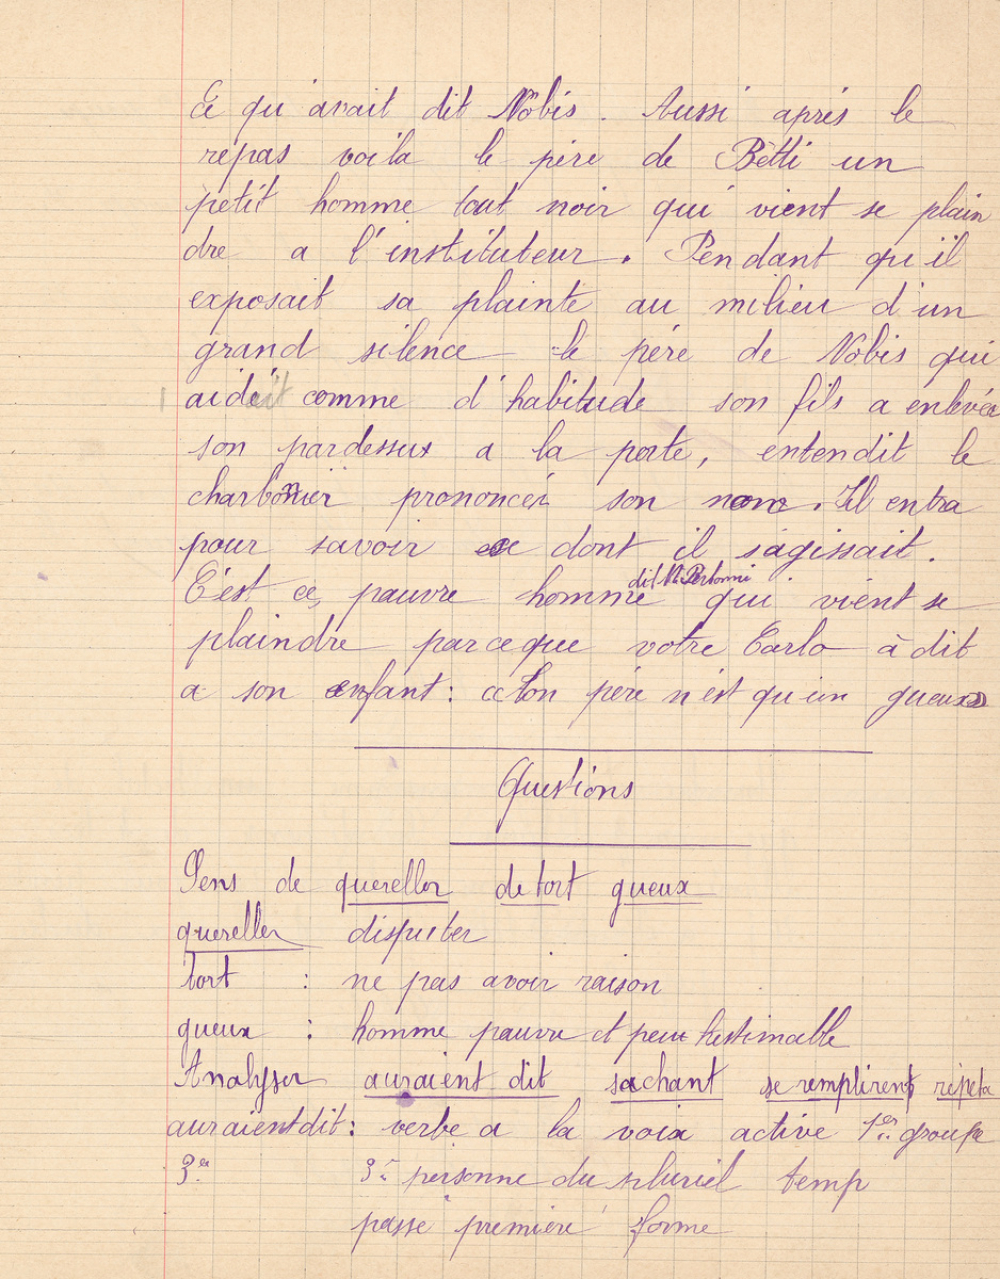 Ce qu'avait dit Nobis. Aussi après le
repas voila le père de Betti un
petit homme tout noir qui vient se plain
dre a l'instituteur. Pendant qu'il
exposait sa plainte au milieu d'un
grand silence le père de Nobis qui
aidait comme d'habitude son fils a enlever
son pardessus a la porte, entendit le
charbonnier prononcer son nom. Il entra
pour savoir ce dont il s'agissait.
C'est ce pauvre homme dit M. Perboni qui vient se
plaindre parceque votre Carlo à dit
a son enfant: Ton père n'est qu'un gueux
Questions
Sens de quereller de tort gueux
quereller disputer
tort : ne pas avoir raison
gueux : homme pauvre et peu estimable
Analyser auraient dit sachant se remplirent répéta
auraient dit: verbe a la voix active 1er groupe
3e 3e personne du pluriel temp
passé première forme